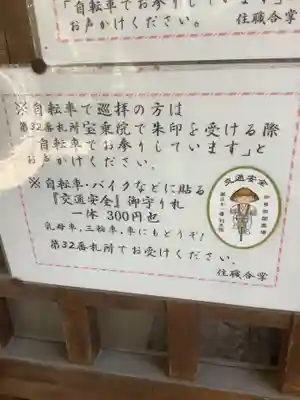 「自転車でお参りしています」と
お声かけください。
住職合掌
※自転車で巡拝の方は
第32番札所宝乗院で朱印を受ける際
「自転車でお参りしています」と
お声かけください。
※自転車・バイクなどに貼る
『交通安全』御守り札
一体 300円也
乳母車、三輪車、車にもどうぞ!
第32番札所でお受けください。
住職合掌
交通安全